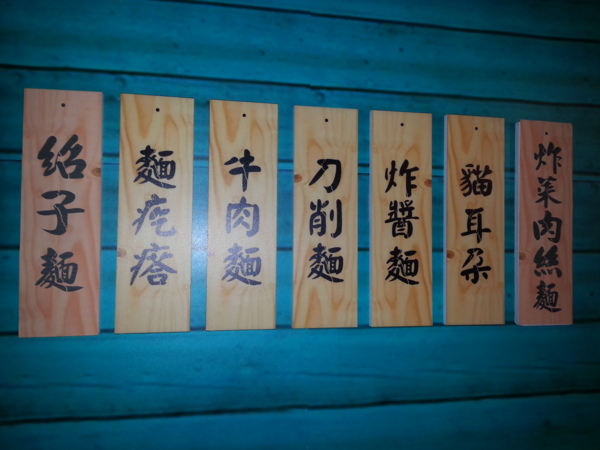 紹子麵
麵疙瘩
牛肉麵
刀削麵
炸醬麵
貓耳朵
炸菜肉絲麵